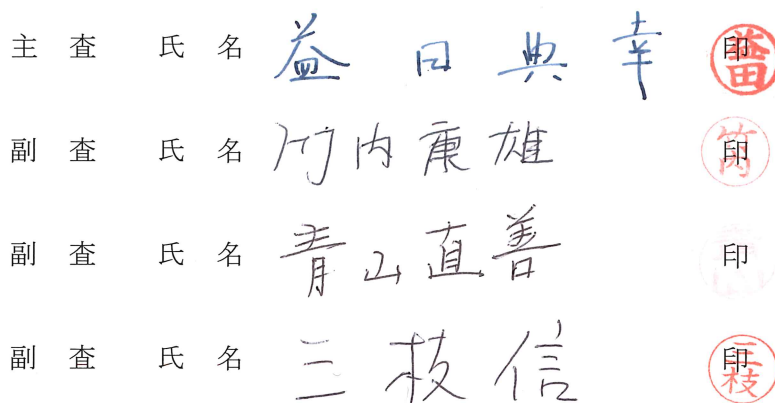 主査 氏名 益田典幸 印
副査 氏名 竹内康雄 印
副査 氏名 青山直善 印
副査 氏名 三枝信 印